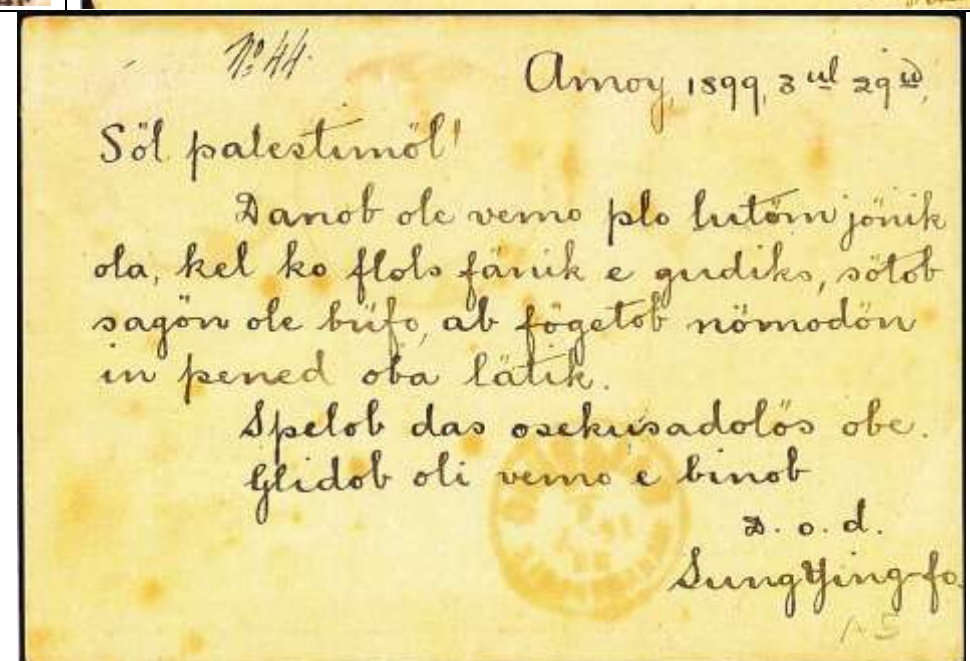 No 44.
Amoy, 1899, 3ul 29id,
Söl palestimöl!
Danob ole vemo plo lutöm jönik
ola, kel ko flols fänik e gudiks, sötob
sagön ole büfo, ab fögetob nömodön
in pened oba lätik.
Spelob das osekusadolös obe.
Glidob oli vemo e binob
D. o. d.
Sung Ying-fo.